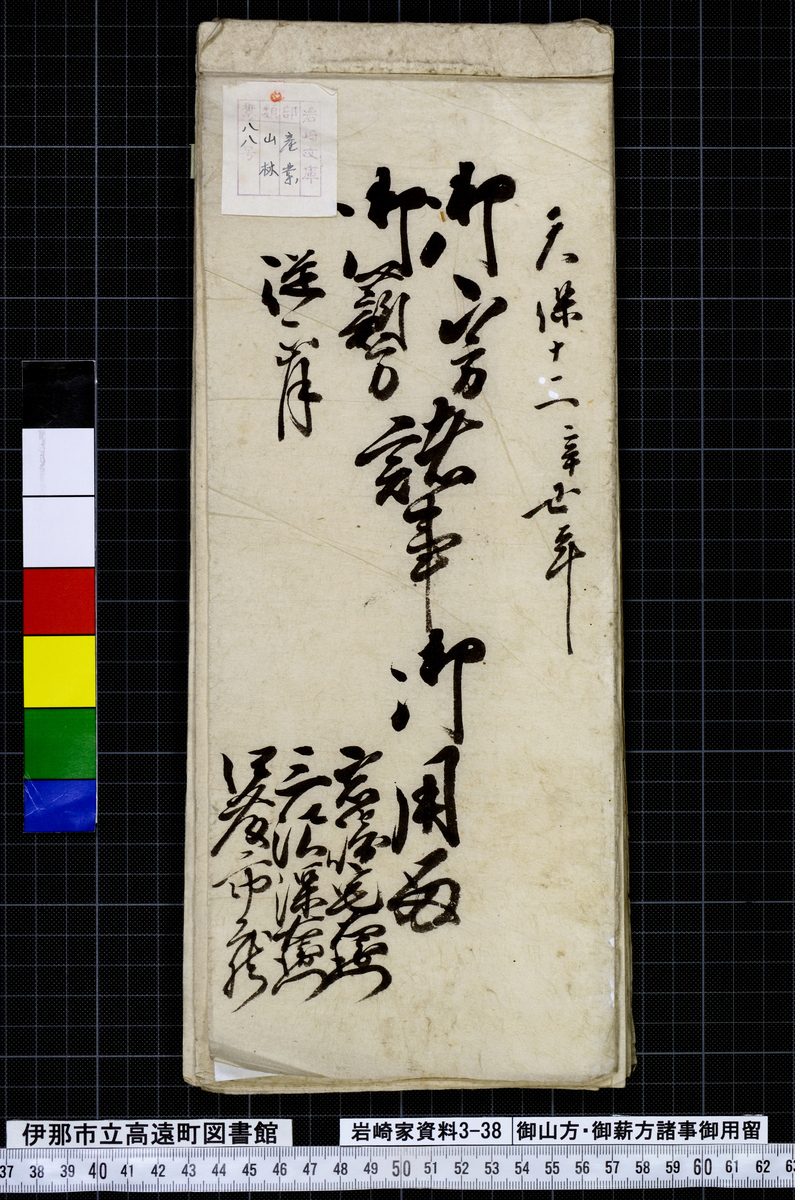 天保十二辛丑年
御山方
御薪方
諸事御用留
従正月
岩崎
市蔵
岩崎文庫
部 産業
類 山林
八八
伊那市立高遠町図書館
岩崎家資料3-38
御山方・御薪方諸事御用留
37 38 39 40 41 42 43 44 45 46 47 48 49 50 51 52 53 54 55 56 57 58 59 60 61 62 63